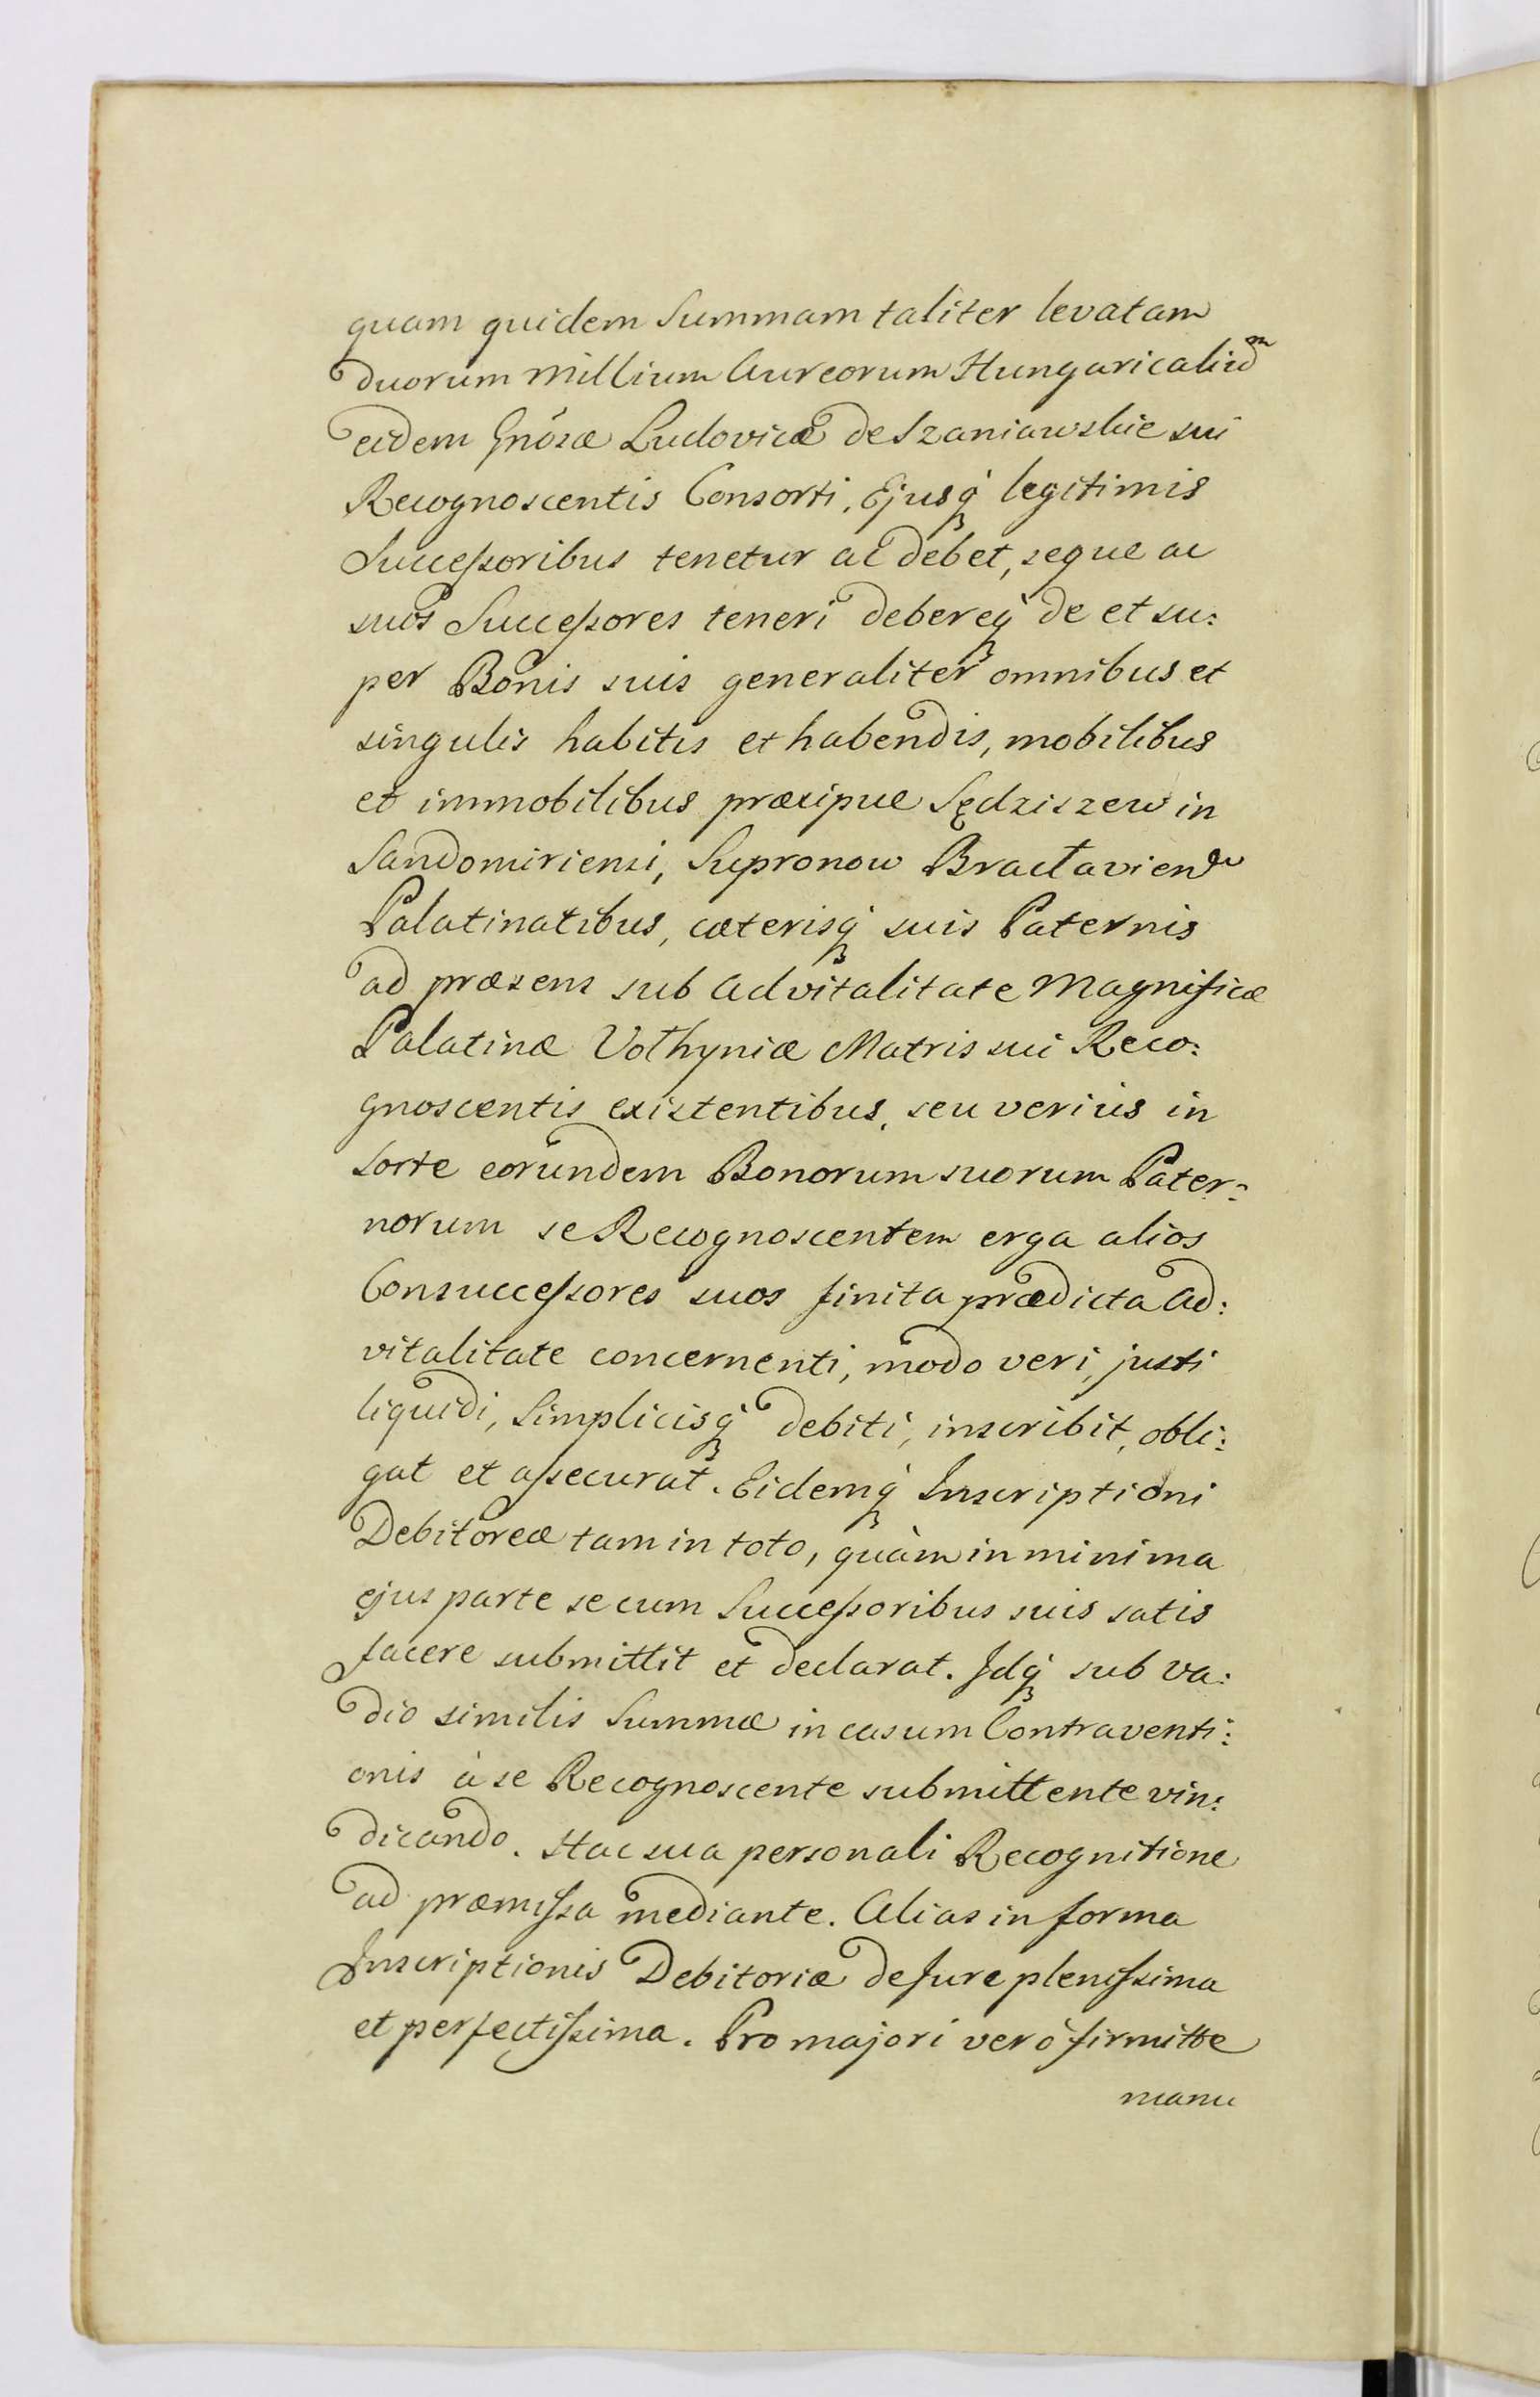 quam quidem Summam taliter levatam
duorum Millium Aureorum Hungaricaliū
eidem Gnosæ Ludovicæ de Szaniawskie sui
Recognoscentis Consorti, Ejusq́ legitimis
Successoribus tenetur ac debet, seque ac
suos Successores teneri debereq́ de et su:
per Bonis suis generaliter omnibus et
singulis habitis et habendis, mobilibus
et immobilibus præcipue Sędziszew in
Sandomiriensi, Supronow Bractavien
Palatinatibus, cæterisq́ suis Paternis
ad præsens sub Advitalitate Magnificæ
Palatinæ Volhyniæ Matris sui Reco:
gnoscentis existentibus, seu verius in
sorte eorundem Bonorum suorum Pater:
norum se Recognoscentem erga alios
Consuccessores suos finita prædicta Ad:
vitalitate concernenti, modo veri, justi
liquidi, Simplicisq́ debiti, inscribit, obli:
gat et assecurat. Eidemq́ Inscriptioni
Debitoreæ tam in toto, quàm in minima
ejus parte se cum Successoribus suis satis
facere submittit et declarat. Idq́ sub va:
dio similis Summæ in casum Contraventi:
onis à se Recognoscente submittente vin:
dicando. Hac sua personali Recognitione
ad præmissa mediante. Alias in forma
Inscriptionis Debitoriæ de Jure plenissima
et perfectissima. Pro majori verò firmitte
manu